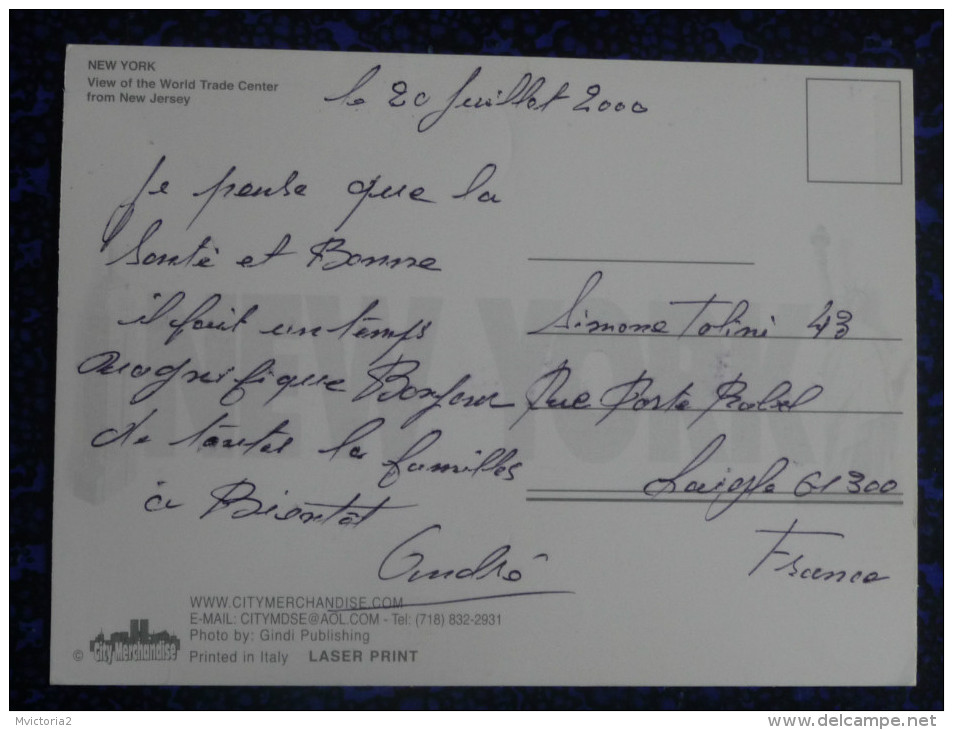 NEW YORK
View of the World Trade Center
from New Jersey
le 20 Juillet 2000
Je pense que la
Santé et Bonne
il fait un temps
magnifique Bonjour
de toutes la familles
à Bientôt
André
Simone Tolini 43
Rue Porte Rabel
Laigle 61300
France
NEW YORK
WWW.CITYMERCHANDISE.COM
E-MAIL: CITYMDSE@AOL.COM - Tel: (718) 832-2931
Photo by: Gindi Publishing
© City Merchandise Printed in Italy LASER PRINT
Mvictoria2
www.delcampe.net